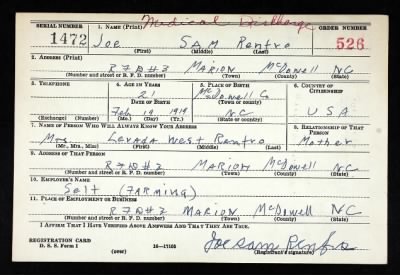 Medical Discharge
SERIAL NUMBER 1. NAME (Print) ORDER NUMBER
1472 Joe SAM Renfro 526
(First) (Middle) (Last)
2. ADDRESS (Print)
R7D#3 MARION McDowell NC
(Number and street or R. F. D. number) (Town) (County) (State)
3. TELEPHONE 4. AGE IN YEARS 5. PLACE OF BIRTH 6. COUNTRY OF CITIZENSHIP
21 McDowell Co
DATE OF BIRTH (Town or county)
Feb 14 1919 NC USA
(Exchange) (Number) (Mo.) (Day) (Yr.) (State or country)
7. NAME OF PERSON WHO WILL ALWAYS KNOW YOUR ADDRESS 8. RELATIONSHIP OF THAT PERSON
Mrs Levada West Renfro Mother
(Mr., Mrs., Miss) (First) (Middle) (Last)
9. ADDRESS OF THAT PERSON
R7D#2 MARION McDowell NC
(Number and street or R. F. D. number) (Town) (County) (State)
10. EMPLOYER'S NAME
Self (FARMING)
11. PLACE OF EMPLOYMENT OR BUSINESS
R7D#2 MARION McDowell NC
(Number and street or R. F. D. number) (Town) (County) (State)
I AFFIRM THAT I HAVE VERIFIED ABOVE ANSWERS AND THAT THEY ARE TRUE.
REGISTRATION CARD
D. S. S. Form 1 (over) 16-17105 Joe Sam Renfro
(Registrant's signature)